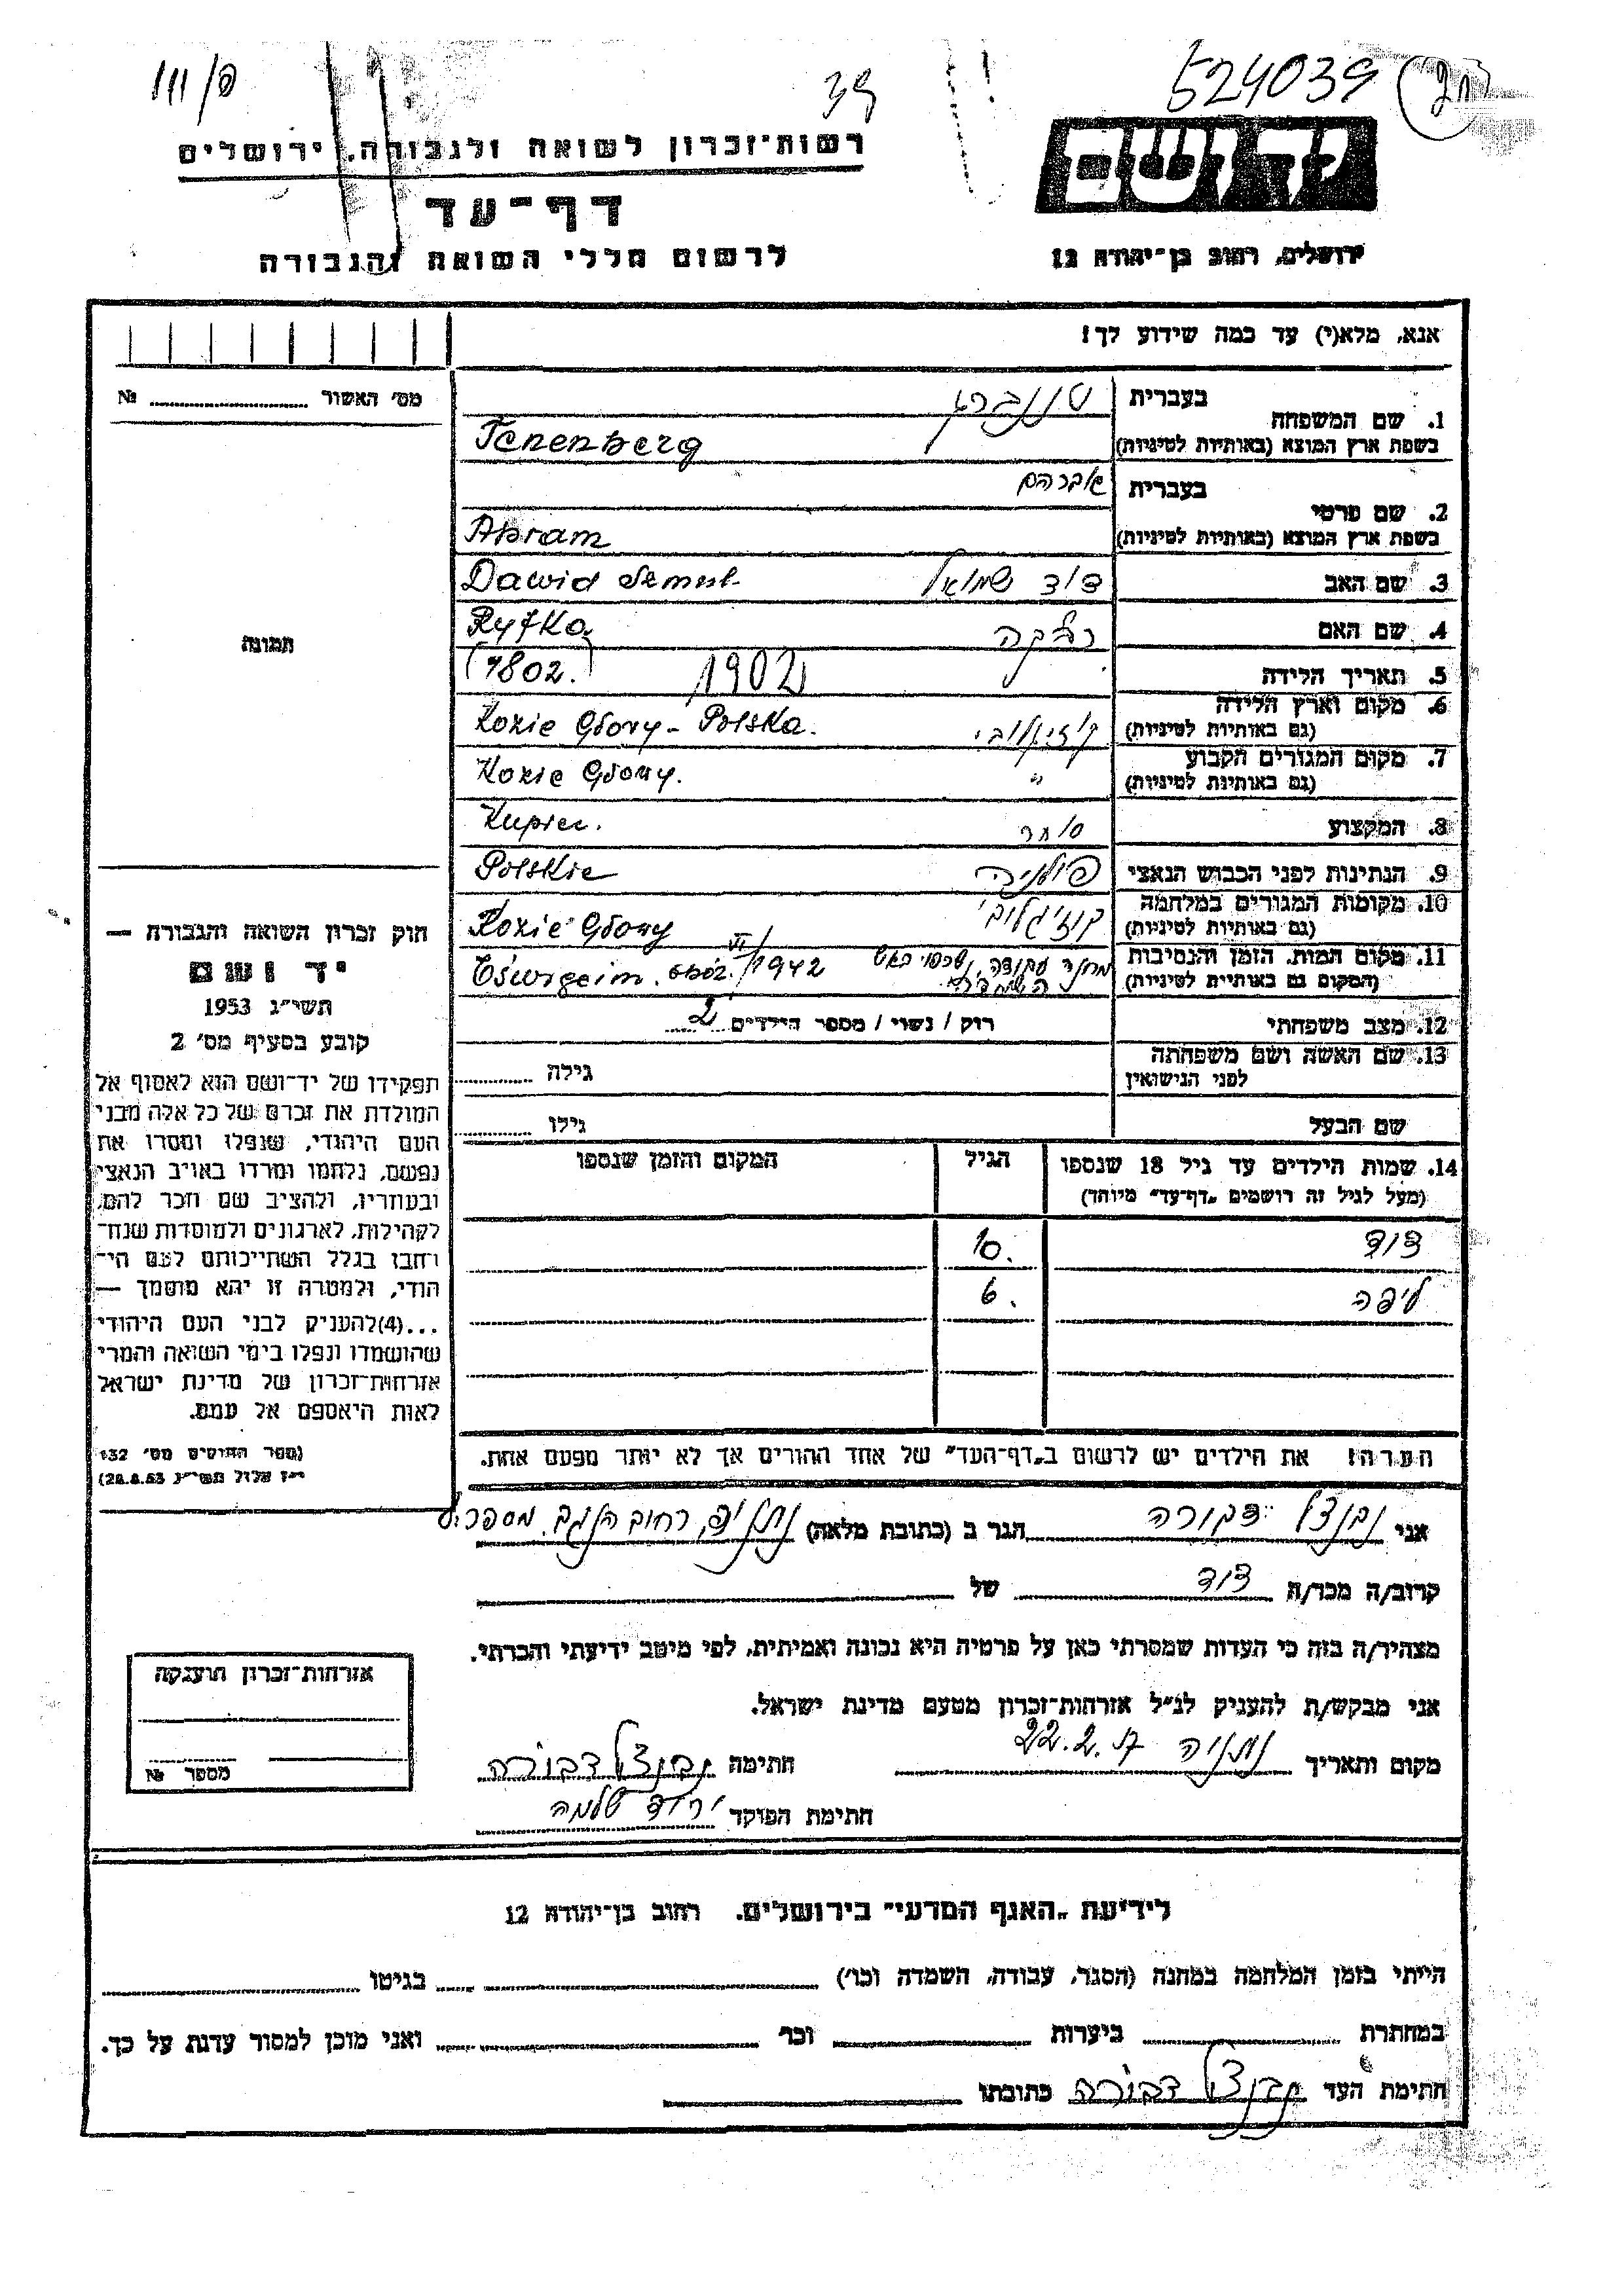 פ/111
39
524039
רשות־זכרון לשואה ולגבורה, ירושלים
דף־עד
לרשום חללי השואה והגבורה
יד ושם
ירושלים, רחוב בן־יהודה 12
אנא, מלא(י) עד כמה שידוע לך!
מס׳ האשור № 
1. שם המשפחה בעברית טננברג
בשפת ארץ המוצא (באותיות לטיניות) Tenenberg
2. שם פרטי בעברית אברהם
בשפת ארץ המוצא (באותיות לטיניות) Abram
3. שם האב דוד שמואל Dawid Szmul
4. שם האם רבקה Ryfka
5. תאריך הלידה 1902 (1802.)
6. מקום וארץ הלידה Kozie Głowy - Polska.
(גם באותיות לטיניות)
7. מקום המגורים הקבוע " Kozie Głowy.
(גם באותיות לטיניות)
8. המקצוע סוחר Kupiec.
9. הנתינות לפני הכבוש הנאצי פולניה Polskie
10. מקומות המגורים במלחמה Kozie Głowy
(גם באותיות לטיניות)
11. מקום המות, הזמן והנסיבות מחנה עבודה, obóz. VI/1942
(המקום גם באותיות לטיניות)
12. מצב משפחתי רוק / נשוי / מספר הילדים 2
13. שם האשה ושם משפחתה לפני הנישואין גילה
שם הבעל גילו
14. שמות הילדים עד גיל 18 שנספו הגיל המקום והזמן שנספו
(מעל לגיל זה רושמים „דף־עד״ מיוחד)
דוד 10.
ליפה 6.
הערה! את הילדים יש לרשום ב„דף־העד״ של אחד ההורים אך לא יותר מפעם אחת.
תמונה
חוק זכרון השואה והגבורה —
יד ושם
תשי״ג 1953
קובע בסעיף מס׳ 2
תפקידו של יד־ושם הוא לאסוף אל
המולדת את זכרם של כל אלה מבני
העם היהודי, שנפלו ומסרו את
נפשם, נלחמו ומרדו באויב הנאצי
ובעוזריו, ולהציב שם וזכר להם,
לקהילות, לארגונים ולמוסדות שנח־
רחבו בגלל השתייכותם לעם הי־
הודי, ולמטרה זו יהא מוסמך —
...(4) להעניק לבני העם היהודי
שהושמדו ונפלו בימי השואה והמרי
אזרחות־זכרון של מדינת ישראל
לאות היאספם אל עמם.
(ספר החוקים מס׳ 132
י״ז אלול תשי״ג 28.8.53)
אני דבורה הגר ב (כתובת מלאה) רחוב הנגב
קרוב/ה מכר/ה דוד של
מצהיר/ה בזה כי העדות שמסרתי כאן על פרטיה היא נכונה ואמיתית, לפי מיטב ידיעתי והכרתי.
אני מבקש/ת להעניק לנ״ל אזרחות־זכרון מטעם מדינת ישראל.
מקום ותאריך נתניה 22.2.57 חתימה דבורה
חתימת הפוקד שלמה
אזרחות־זכרון הוענקה
מספר №
לידיעת „האגף המדעי״ בירושלים, רחוב בן־יהודה 12
הייתי בזמן המלחמה במחנה (הסגר, עבודה, השמדה וכו׳) בגיטו
במחתרת ביערות וכו׳ ואני מוכן למסור עדות על כך.
חתימת העד דבורה כתובתו